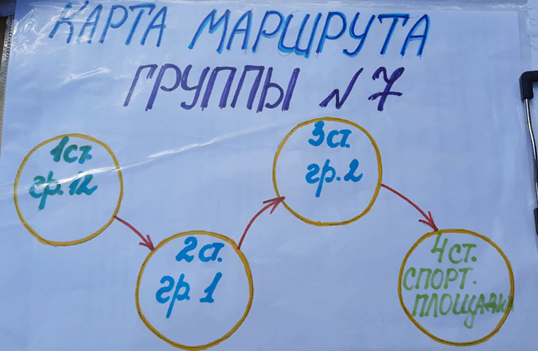 КАРТА МАРШРУТА
ГРУППЫ №7
1ст.
гр.12
2ст.
гр.1
3ст.
гр.2
4ст.
СПОРТ.
ПЛОЩАДКА